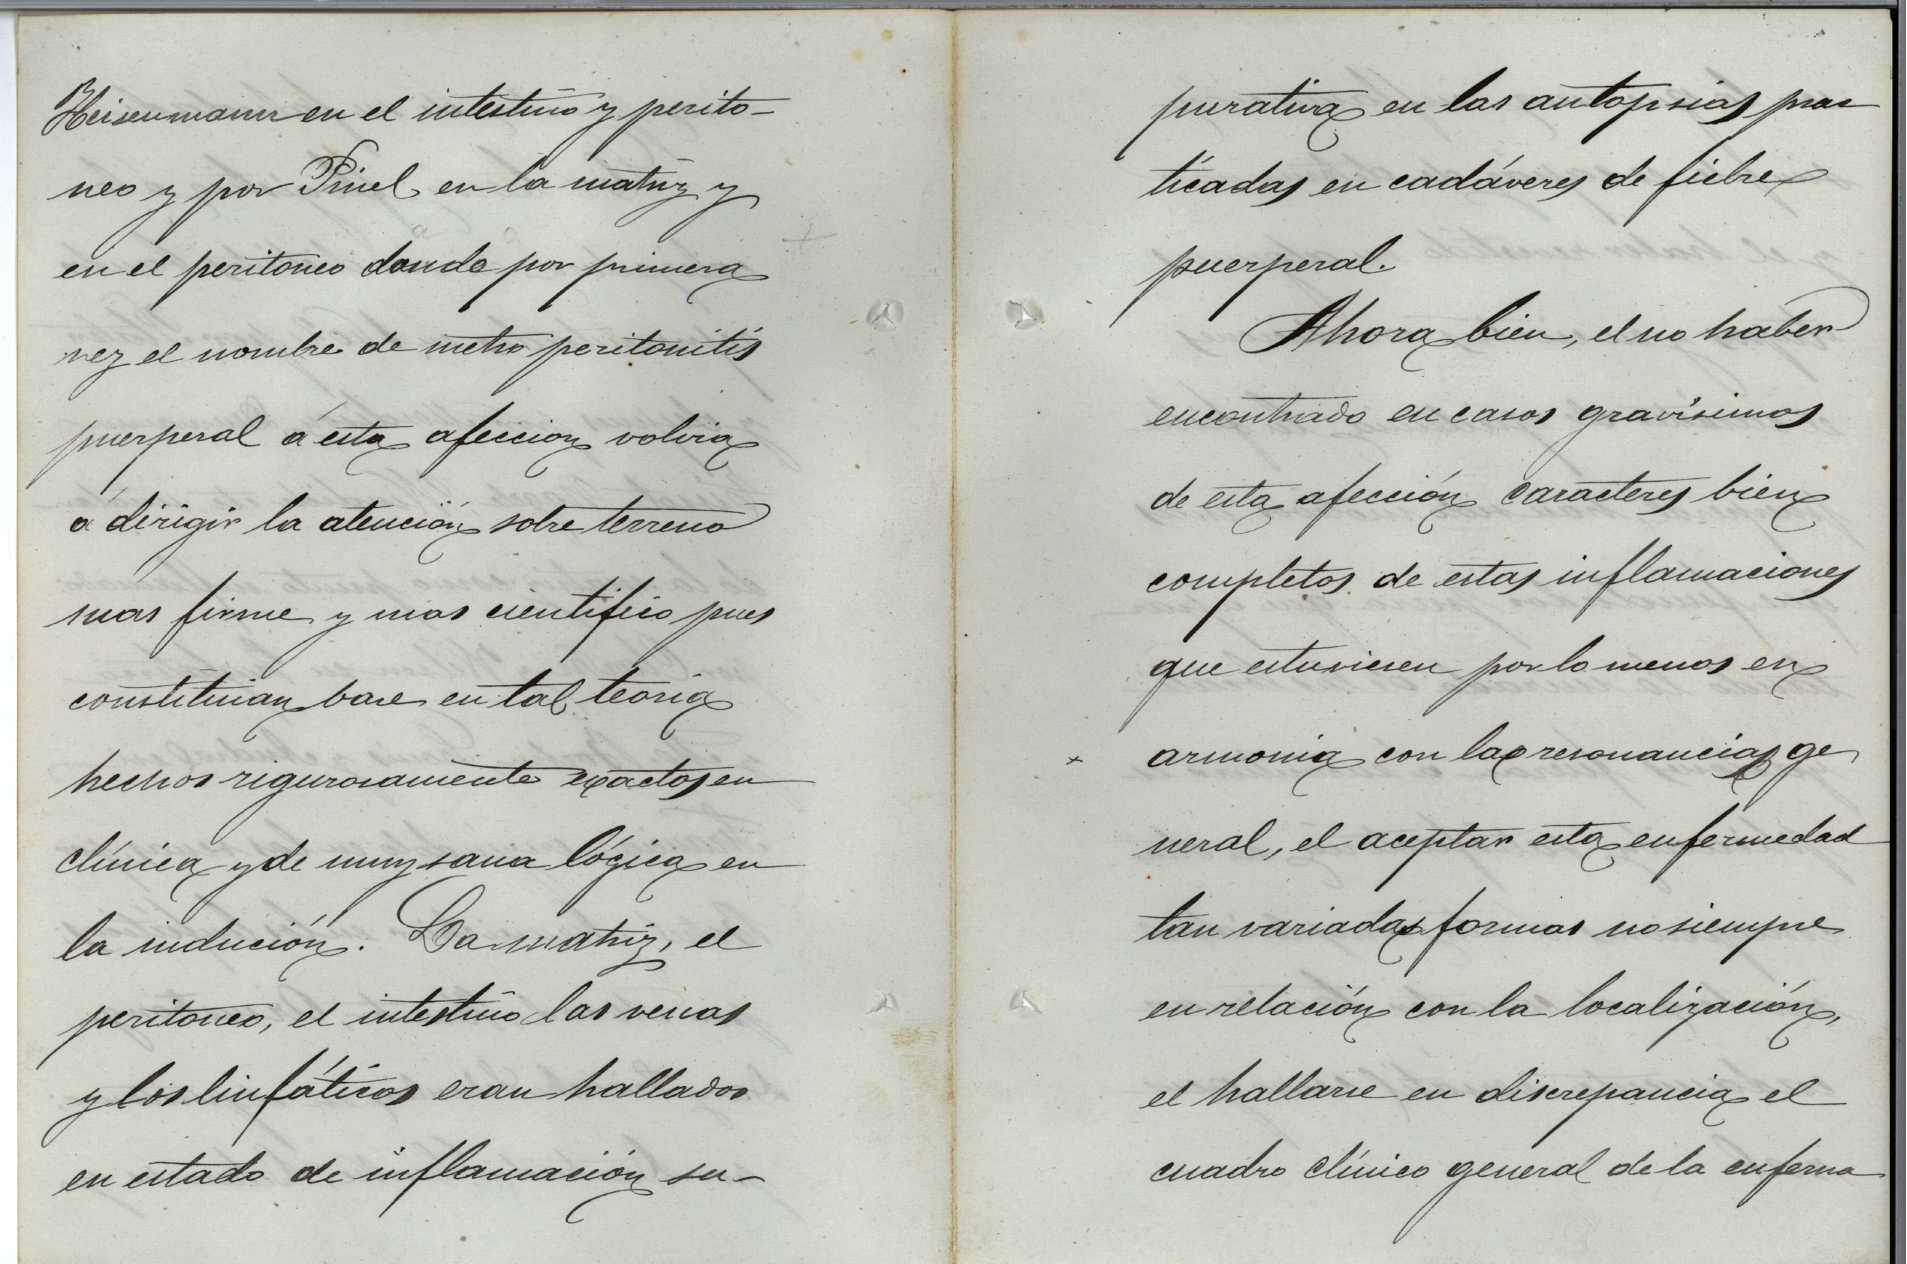 Heisenmann en el intestino y perito-
neo y por Pinel en la matriz y
en el peritoneo donde por primera
vez el nombre de metro peritonitis
puerperal á esta afeccion volvia
á dirigir la atención sobre terreno
mas firme y mas cientifico pues
constituian base en tal teoria
hechos rigurosamente exactos en
clínica y de muy sana lógica en
la indución. La matriz, el
peritoneo, el intestino las venas
y los linfáticos eran hallados
en estado de inflamación su-
purativa en las autopsias prac
ticadas en cadáveres de fiebre
puerperal.
Ahora bien, el no haber
encontrado en casos gravísimos
de esta afección caracteres bien
completos de estas inflamaciones
que estuviesen por lo menos en
armonia con las resonancias ge
neral, el aceptar esta enfermedad
tan variadas formas no siempre
en relación con la localización,
el hallarse en discrepancia el
cuadro clínico general de la enferma